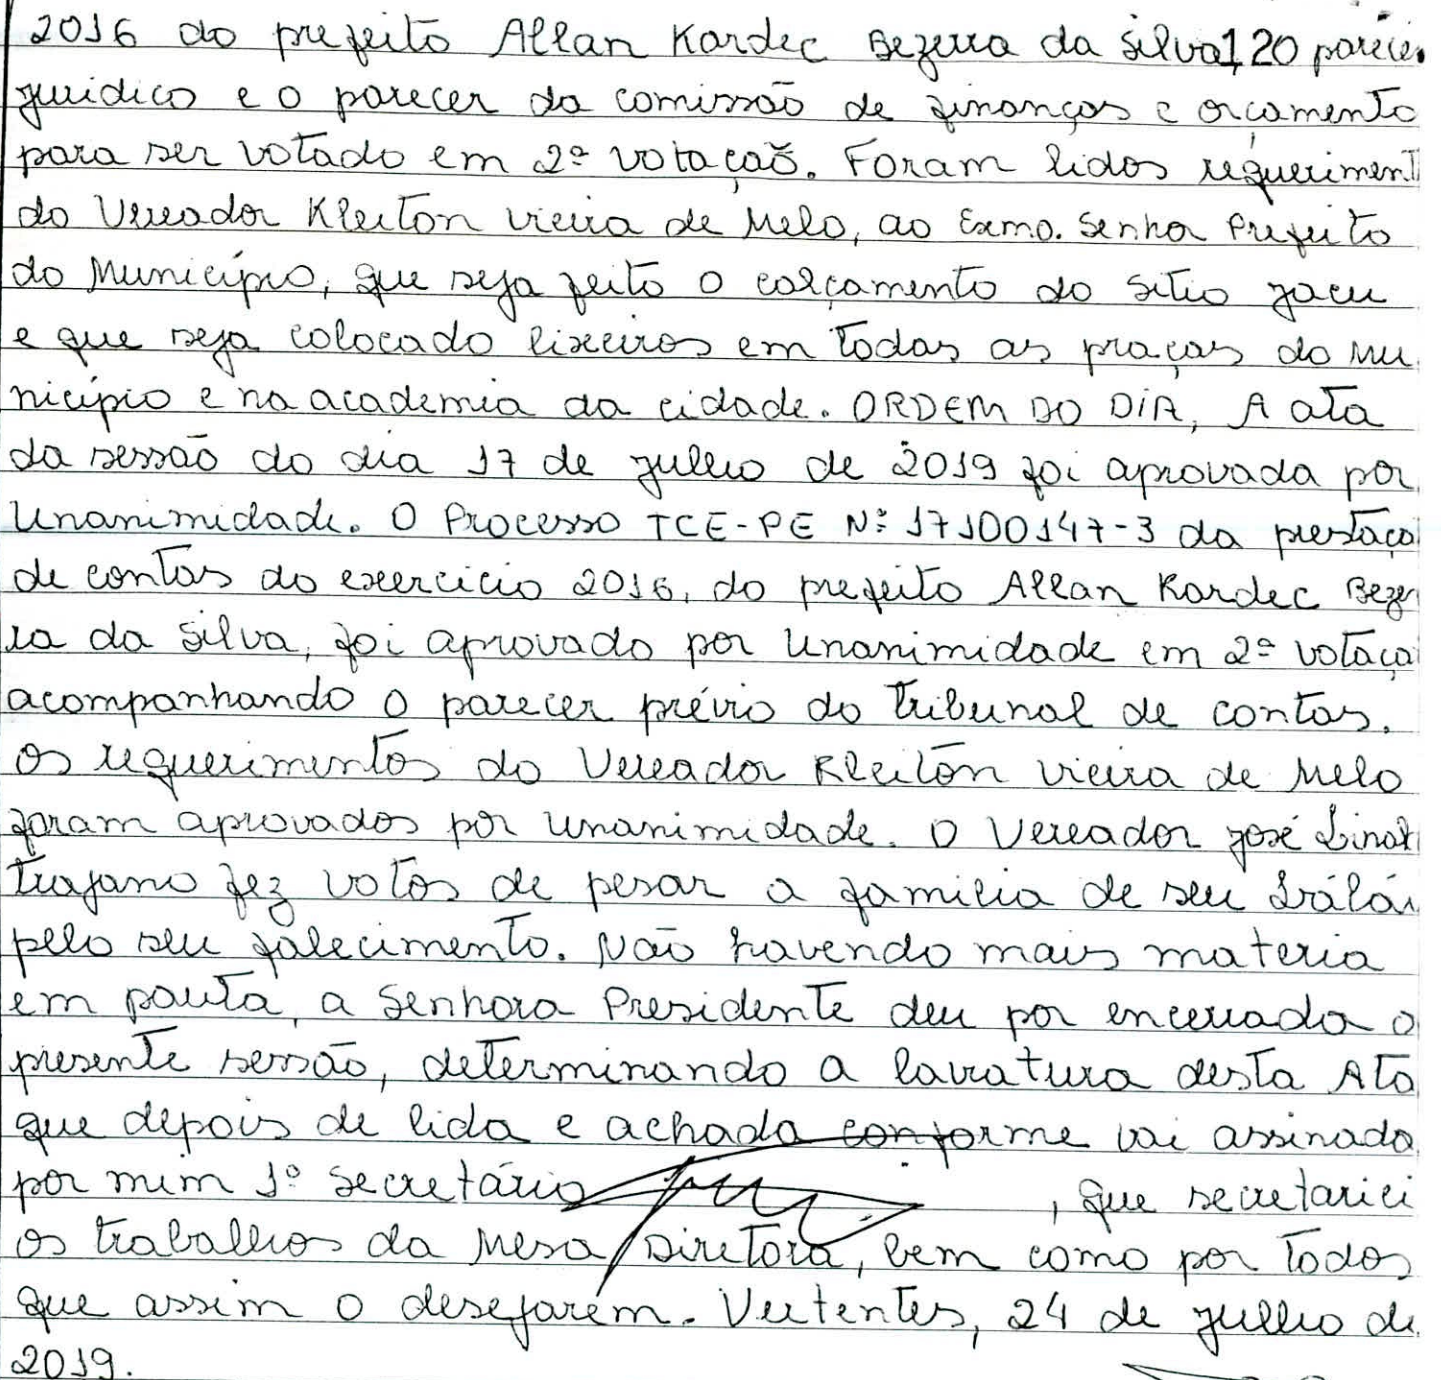 2016 do prefeito Allan Kardec Bezerra da Silva, 20 parecer
jurídico e o parecer da comissão de finanças e orçamento
para ser votado em 2ª votação. Foram lidos requeriment
do Vereador Kleiton vieira de Melo, ao Exmo. Senhor Prefeito
do Município, que seja feito o calçamento do sitio jacu
e que seja colocado lixeiros em todas as praças do Mu
nicípio e na academia da cidade. ORDEM DO DIA, A ata
da sessão do dia 17 de julho de 2019 foi aprovada por
Unanimidade. O Processo TCE-PE Nº 17100147-3 da prestaçã
de contas do exercicio 2016, do prefeito Allan Kardec Bezer
ra da Silva, foi aprovado por Unanimidade em 2ª votaçã
acompanhando o parecer prévio do tribunal de contas.
Os requerimentos do Vereador Kleiton vieira de Melo
foram aprovados por unanimidade. O Vereador José
trajano fez votos de pesar a familia de seu
pelo seu falecimento. Não havendo mais materia
em pauta, a Senhora Presidente deu por encerrada a
presente sessão, determinando a lavratura desta Ata
que depois de lida e achada conforme vai assinada
por mim 1º secretário , que secretariei
os trabalhos da Mesa Diretora, bem como por todos
que assim o desejarem. Vertentes, 24 de julho de
2019.